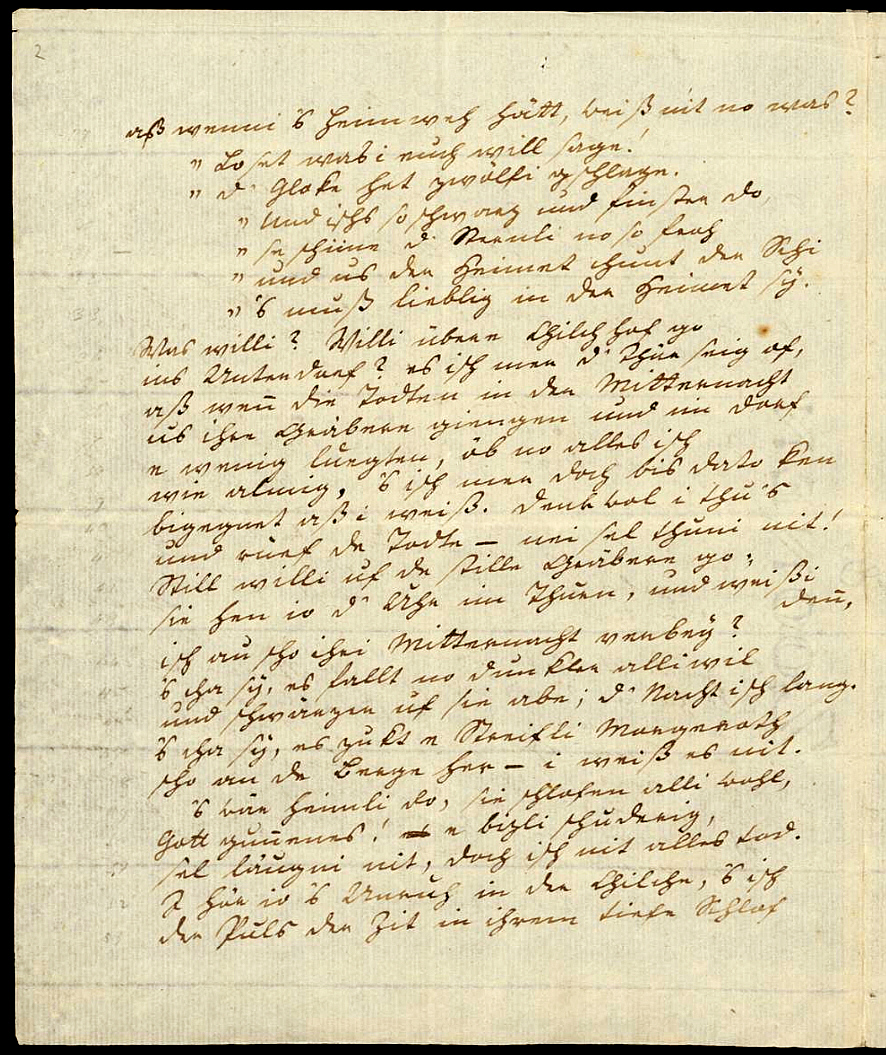 2
aß wenni 's Heimweh hätt, weiß nit no was?
" Loset was i euch will sage!
" d' Gloke het zwölfi gschlage.
" Und ischs so schwarz und finster do,
" se schiine d' Sternli no so froh
" und us der Heimet chunt der Schi
" 's muß lieblig in der Heimet sÿ.
Was willi? Willi übere Chilchhof go
ins Unterdorf? es isch mer d' Thür seig of,
aß wen̄ die Todten in der Mitternacht
us ihre Gräbere giengen und im Dorf
e wenig luegten, öb no alles isch
wie almig, 's isch mer doch bis dato ken
bigegnet aß i weiß. Denk wol i thu's
und ruef de Todte – nei sel thuni nit!
Still willi uf de stille Gräbere go;
sie hen io d' Uhr im Thurn, und weißi
den̄,
isch au scho ihri Mitternacht verbeÿ?
's cha sÿ, es fallt no dunkler alliwil
und schwärzer uf sie abe; d' Nacht isch lang.
's cha sÿ, es zukt e Streifli Morgeroth
scho an de Berge her – i weiß es nit.
's wär heimli do, sie schlofen alli wohl,
Gott gun̄enes! e bizli schuderig,
sel läugni nit, doch isch nit alles tod.
I hör io 's Unruh in der Chilche, 's isch
der Puls der Zit in ihrem tiefe Schlof